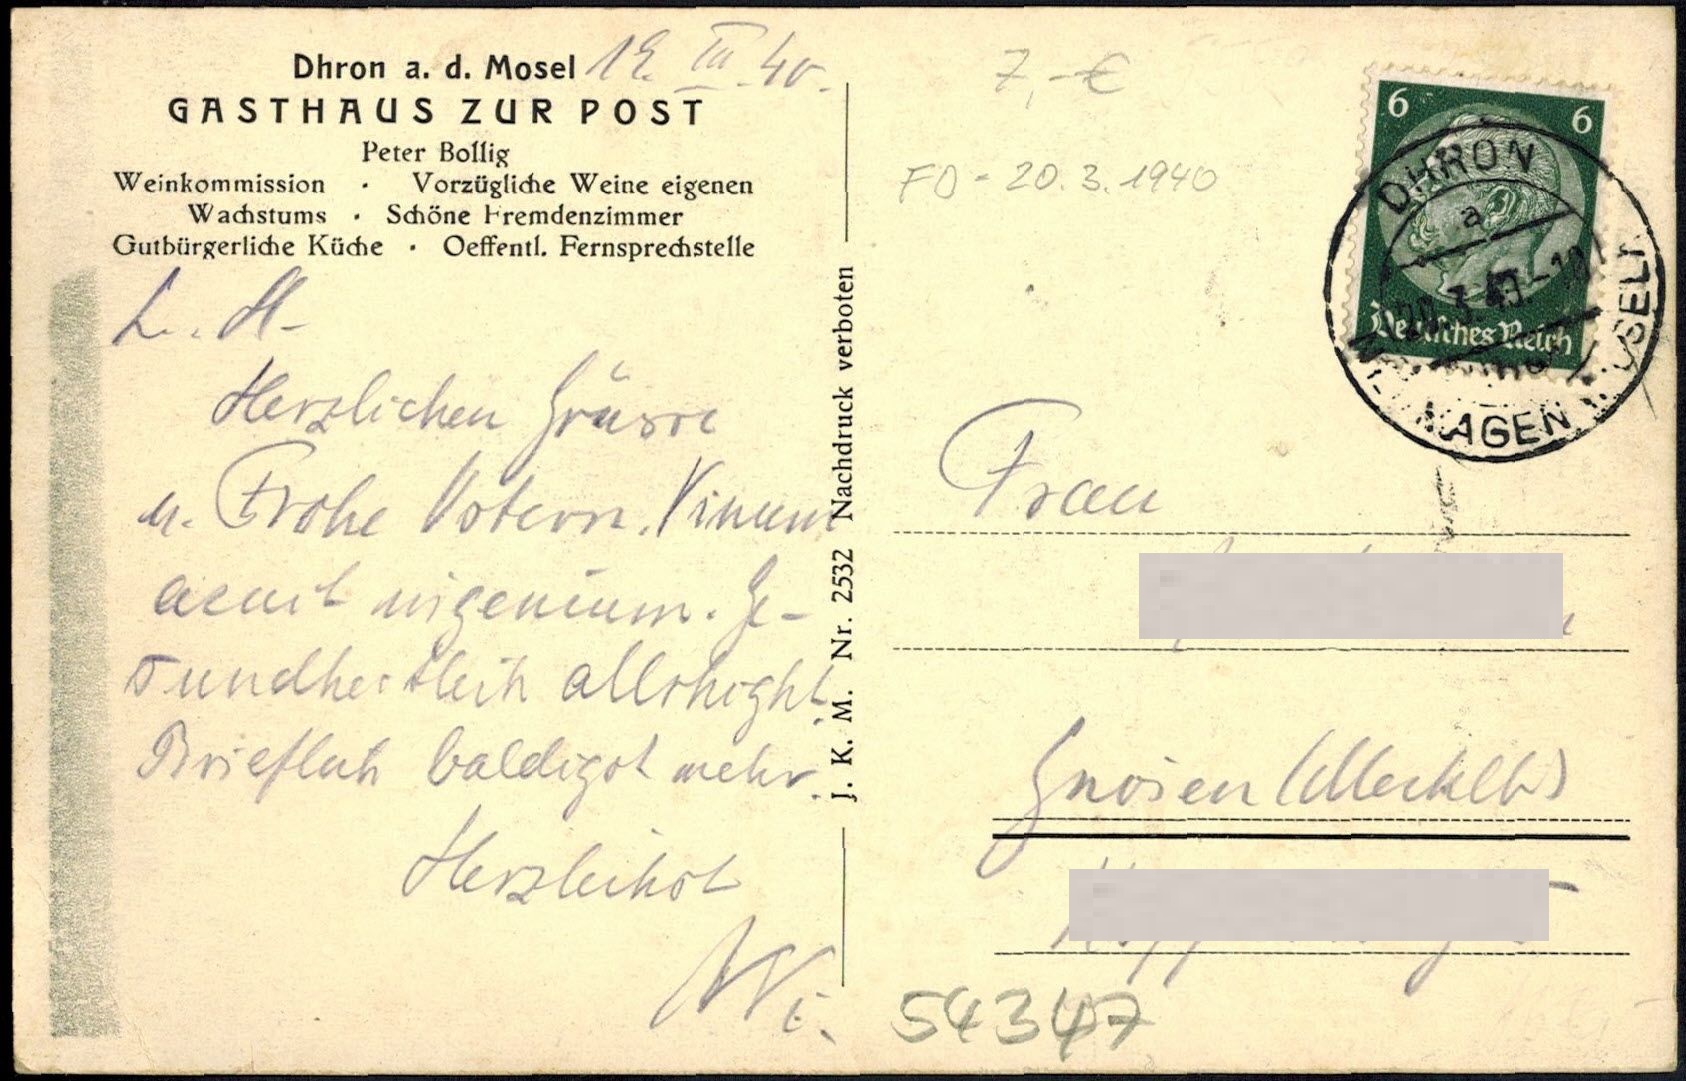 Dhron a. d. Mosel 19. III. 40.
GASTHAUS ZUR POST
Peter Bollig
Weinkommission · Vorzügliche Weine eigenen
Wachstums · Schöne Fremdenzimmer
Gutbürgerliche Küche · Oeffentl. Fernsprechstelle
L. H-
Herzlichen Grüsse
u. Frohe Ostern. Vinum
acuit ingenium. Ge-
sundheitlich allrhight.
Brieflich baldigst mehr.
Herzlichst
Wi.
J. K. M. Nr. 2532 Nachdruck verboten
7,-€
FD - 20.3.1940
6 6
Deutsches Reich
DHRON
a
20.3.40.-10
MAGEN MOSEL
Frau
Gnoien (Mecklb)
54347